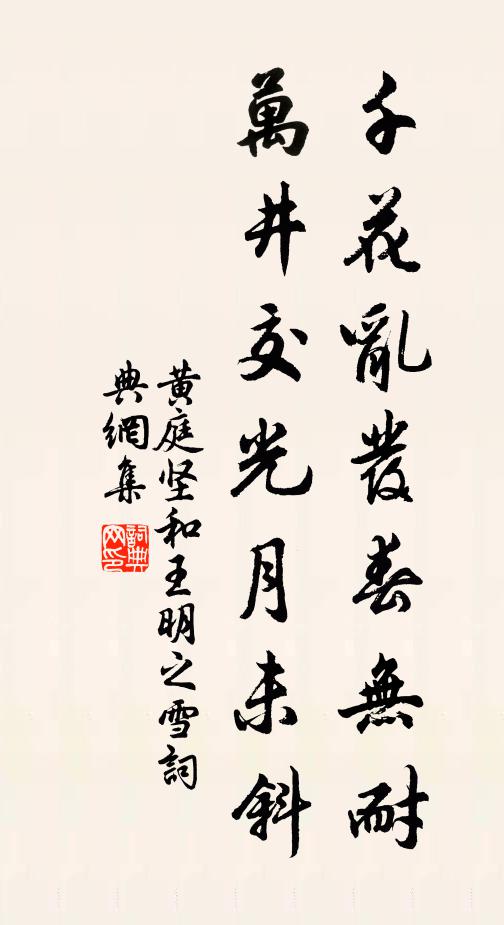 千花亂發春無耐
萬井交光月未斜
黄庭坚和王明之雪詞
典網集
詞典網印